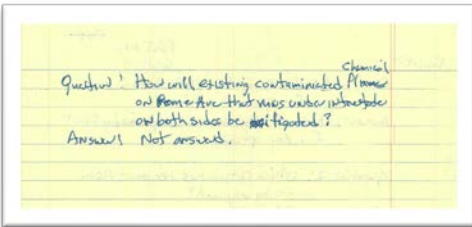 Chemical
Question! How will existing contaminated Plumes
on Rome Ave that runs under interstate
on both sides be mitigated?
Answer! Not answered.